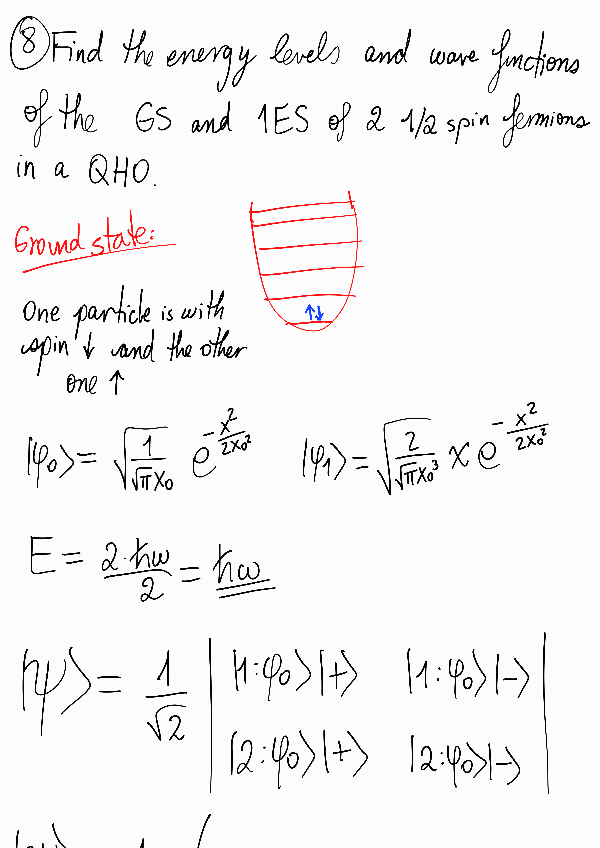 ⑧ Find the energy levels and wave functions
of the GS and 1ES of 2 1/2 spin fermions
in a QHO.
Ground state:
↑↓
One particle is with
spin ↓ and the other
one ↑
|φ₀⟩ = √(1/(√π x₀)) e^(-x²/(2x₀²))    |φ₁⟩ = √(2/(√π x₀³)) x e^(-x²/(2x₀²))
E = 2·ħω/2 = ħω
|ψ⟩ = 1/√2 | |1:φ₀⟩|+⟩  |1:φ₀⟩|-⟩ |
| |2:φ₀⟩|+⟩  |2:φ₀⟩|-⟩ |